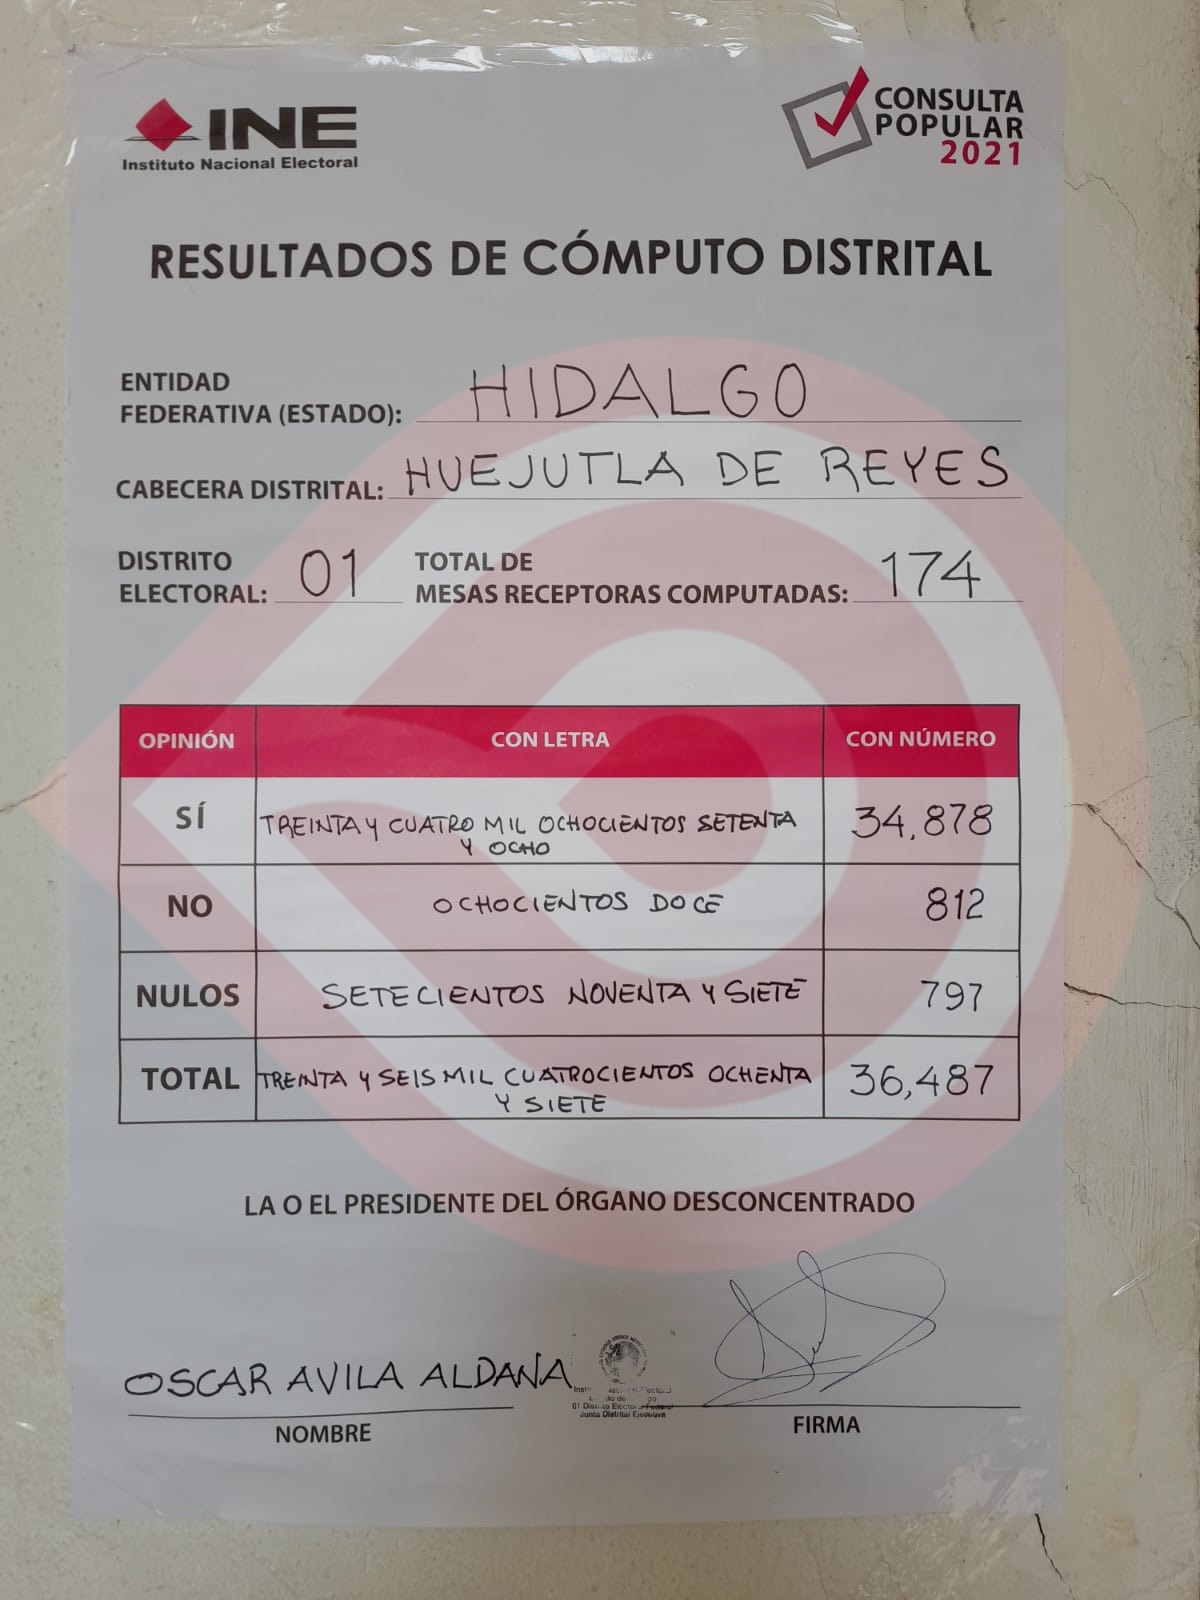 INE
Instituto Nacional Electoral
CONSULTA
POPULAR
2021
RESULTADOS DE CÓMPUTO DISTRITAL
ENTIDAD
FEDERATIVA (ESTADO): HIDALGO
CABECERA DISTRITAL: HUEJUTLA DE REYES
DISTRITO
ELECTORAL: 01
TOTAL DE
MESAS RECEPTORAS COMPUTADAS: 174
OPINIÓN CON LETRA CON NÚMERO
SÍ TREINTA Y CUATRO MIL OCHOCIENTOS SETENTA 34,878
Y OCHO
NO OCHOCIENTOS DOCE 812
NULOS SETECIENTOS NOVENTA Y SIETE 797
TOTAL TREINTA Y SEIS MIL CUATROCIENTOS OCHENTA 36,487
Y SIETE
LA O EL PRESIDENTE DEL ÓRGANO DESCONCENTRADO
OSCAR AVILA ALDANA
01 Distrito Electoral Federal
Junta Distrital Ejecutiva
NOMBRE
FIRMA